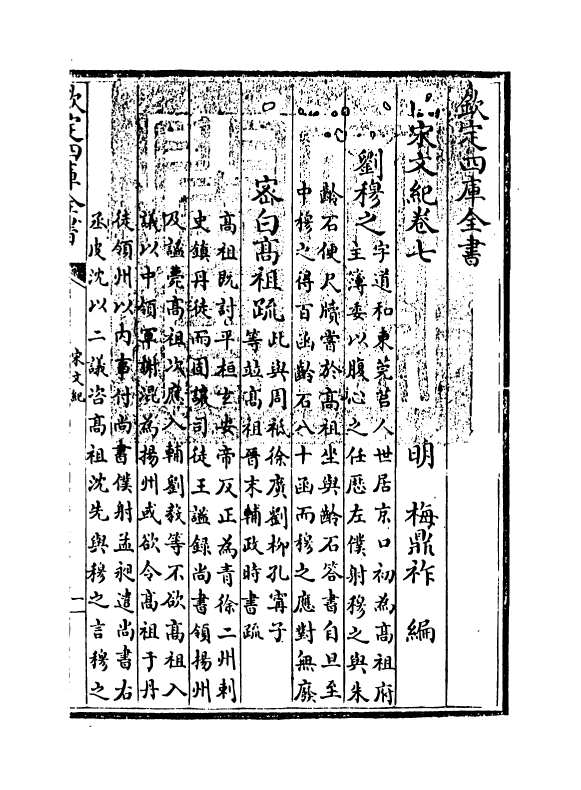 欽定四庫全書
宋文紀卷七
明 梅鼎祚 編
劉穆之
字道和東莞莒人世居京口初為髙祖府
主簿委以腹心之任歴左僕射穆之與朱
齡石便尺牘嘗於髙祖坐與齡石答書自旦至
中穆之得百函齡石八十函而穆之應對無廢
密白髙祖疏
此與周祗徐廣劉柳孔甯子
等並髙祖晉末輔政時書疏
髙祖既討平桓𤣥安帝反正為青徐二州刺
史鎮丹徒而固讓司徒王謐録尚書領揚州
及謐薨髙祖次應入輔劉毅等不欲髙祖入
議以中領軍謝混為揚州或欲令髙祖于丹
徒領州以内事付尚書僕射孟昶遣尚書右
丞皮沈以二議咨髙祖沈先與穆之言穆之
欽定四庫全書
宋文紀
一